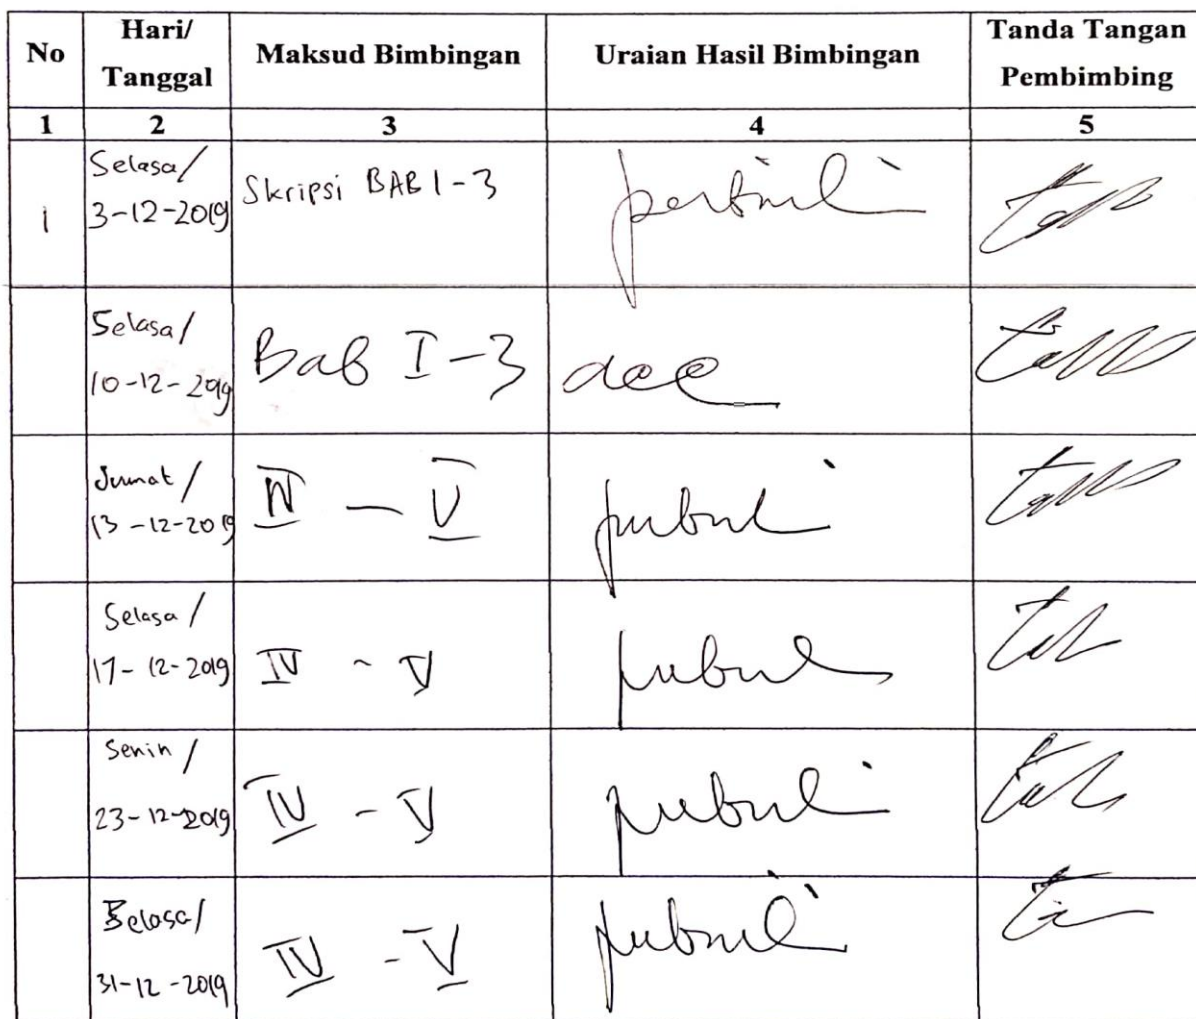 No Hari/ Tanggal Maksud Bimbingan Uraian Hasil Bimbingan Tanda Tangan Pembimbing
1 2 3 4 5
1 Selasa/ 3-12-2019 Skripsi BAB 1-3
Selasa/ 10-12-2019 Bab I-3 acc
Jumat/ 13-12-2019 IV - V
Selasa/ 17-12-2019 IV - V
Senin/ 23-12-2019 IV - V
Selasa/ 31-12-2019 IV - V